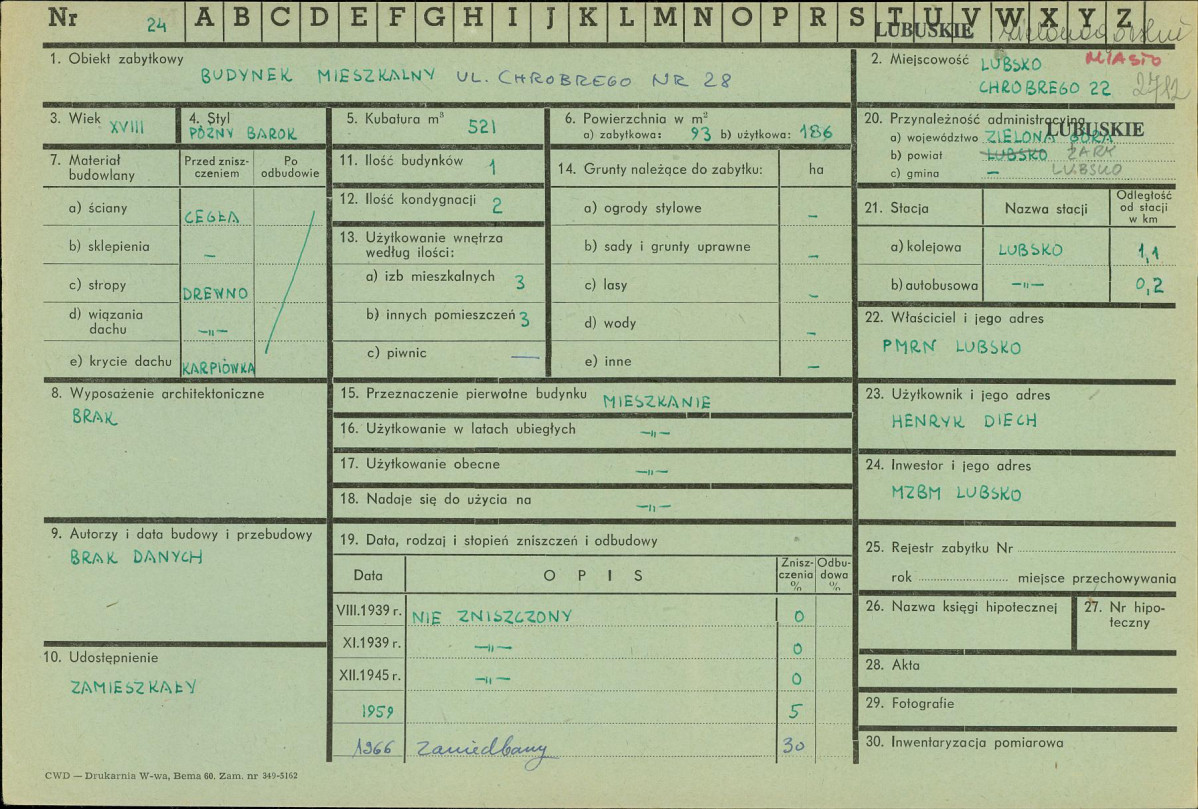 Nr 24 A B C D E F G H I J K L M N O P R S T U V W X Y Z
LUBUSKIE
1. Obiekt zabytkowy
BUDYNEK MIESZKALNY UL. CHROBREGO NR 28
2. Miejscowość LUBSKO MIASTO
CHROBREGO 22 2712
3. Wiek XVIII
4. Styl
PÓŹNY BAROK
5. Kubatura m³ 521
6. Powierzchnia w m²
a) zabytkowa: 93 b) użytkowa: 186
20. Przynależność administracyjna
LUBUSKIE
a) województwo ZIELONA GÓRA
b) powiat LUBSKO ŻARY
c) gmina — LUBSKO
7. Materiał budowlany
Przed zniszczeniem
Po odbudowie
a) ściany CEGŁA
b) sklepienia —
c) stropy DREWNO
d) wiązania dachu —„—
e) krycie dachu KARPIÓWKA
11. Ilość budynków 1
12. Ilość kondygnacji 2
13. Użytkowanie wnętrza
według ilości:
a) izb mieszkalnych 3
b) innych pomieszczeń 3
c) piwnic —
14. Grunty należące do zabytku: ha
a) ogrody stylowe —
b) sady i grunty uprawne —
c) lasy —
d) wody —
e) inne —
21. Stacja Nazwa stacji Odległość od stacji w km
a) kolejowa LUBSKO 1,1
b) autobusowa —„— 0,2
22. Właściciel i jego adres
PMRN LUBSKO
8. Wyposażenie architektoniczne
BRAK
15. Przeznaczenie pierwotne budynku MIESZKANIE
16. Użytkowanie w latach ubiegłych —„—
17. Użytkowanie obecne —„—
18. Nadaje się do użycia na —„—
23. Użytkownik i jego adres
HENRYK DIECH
24. Inwestor i jego adres
MZBM LUBSKO
9. Autorzy i data budowy i przebudowy
BRAK DANYCH
19. Data, rodzaj i stopień zniszczeń i odbudowy
Data OPIS Zniszczenia % Odbudowa %
VIII.1939 r. NIE ZNISZCZONY 0
XI.1939 r. —„— 0
XII.1945 r. —„— 0
1959 5
1966 zaniedbany 30
25. Rejestr zabytku Nr
rok miejsce przechowywania
26. Nazwa księgi hipotecznej
27. Nr hipoteczny
10. Udostępnienie
ZAMIESZKAŁY
28. Akta
29. Fotografie
30. Inwentaryzacja pomiarowa
CWD — Drukarnia W-wa, Bema 60. Zam. nr 349-5162